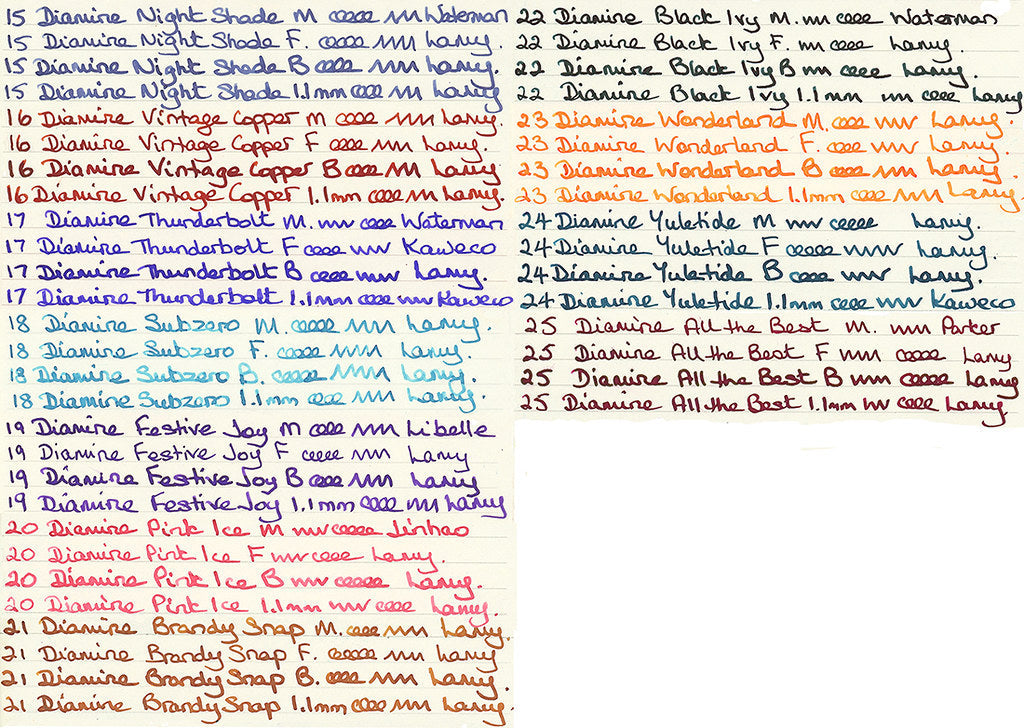 15 Diamine Night Shade M Waterman
15 Diamine Night Shade F. Lamy.
15 Diamine Night Shade B Lamy.
15 Diamine Night Shade 1.1mm Lamy
16 Diamine Vintage Copper M Lamy.
16 Diamine Vintage Copper F Lamy.
16 Diamine Vintage Copper B Lamy
16 Diamine Vintage Copper 1.1mm Lamy.
17 Diamine Thunderbolt M. Waterman
17 Diamine Thunderbolt F Kaweco
17 Diamine Thunderbolt B Lamy.
17 Diamine Thunderbolt 1.1mm Kaweco
18 Diamine Subzero M. Lamy.
18 Diamine Subzero F. Lamy.
18 Diamine Subzero B. Lamy.
18 Diamine Subzero 1.1mm Lamy.
19 Diamine Festive Joy M Libelle
19 Diamine Festive Joy F Lamy
19 Diamine Festive Joy B Lamy
19 Diamine Festive Joy 1.1mm Lamy
20 Diamine Pink Ice M Jinhao
20 Diamine Pink Ice F Lamy.
20 Diamine Pink Ice B Lamy.
20 Diamine Pink Ice 1.1mm Lamy.
21 Diamine Brandy Snap M. Lamy.
21 Diamine Brandy Snap F. Lamy
21 Diamine Brandy Snap B. Lamy.
21 Diamine Brandy Snap 1.1mm Lamy.
22 Diamine Black Ivy M. Waterman
22 Diamine Black Ivy F. Lamy.
22 Diamine Black Ivy B Lamy.
22 Diamine Black Ivy 1.1mm Lamy
23 Diamine Wonderland M. Lamy.
23 Diamine Wonderland F. Lamy.
23 Diamine Wonderland B Lamy.
23 Diamine Wonderland 1.1mm Lamy.
24 Diamine Yuletide M Lamy.
24 Diamine Yuletide F Lamy.
24 Diamine Yuletide B Lamy.
24 Diamine Yuletide 1.1mm Kaweco
25 Diamine All the Best M. Parker
25 Diamine All the Best F Lamy
25 Diamine All the Best B Lamy
25 Diamine All the Best 1.1mm Lamy